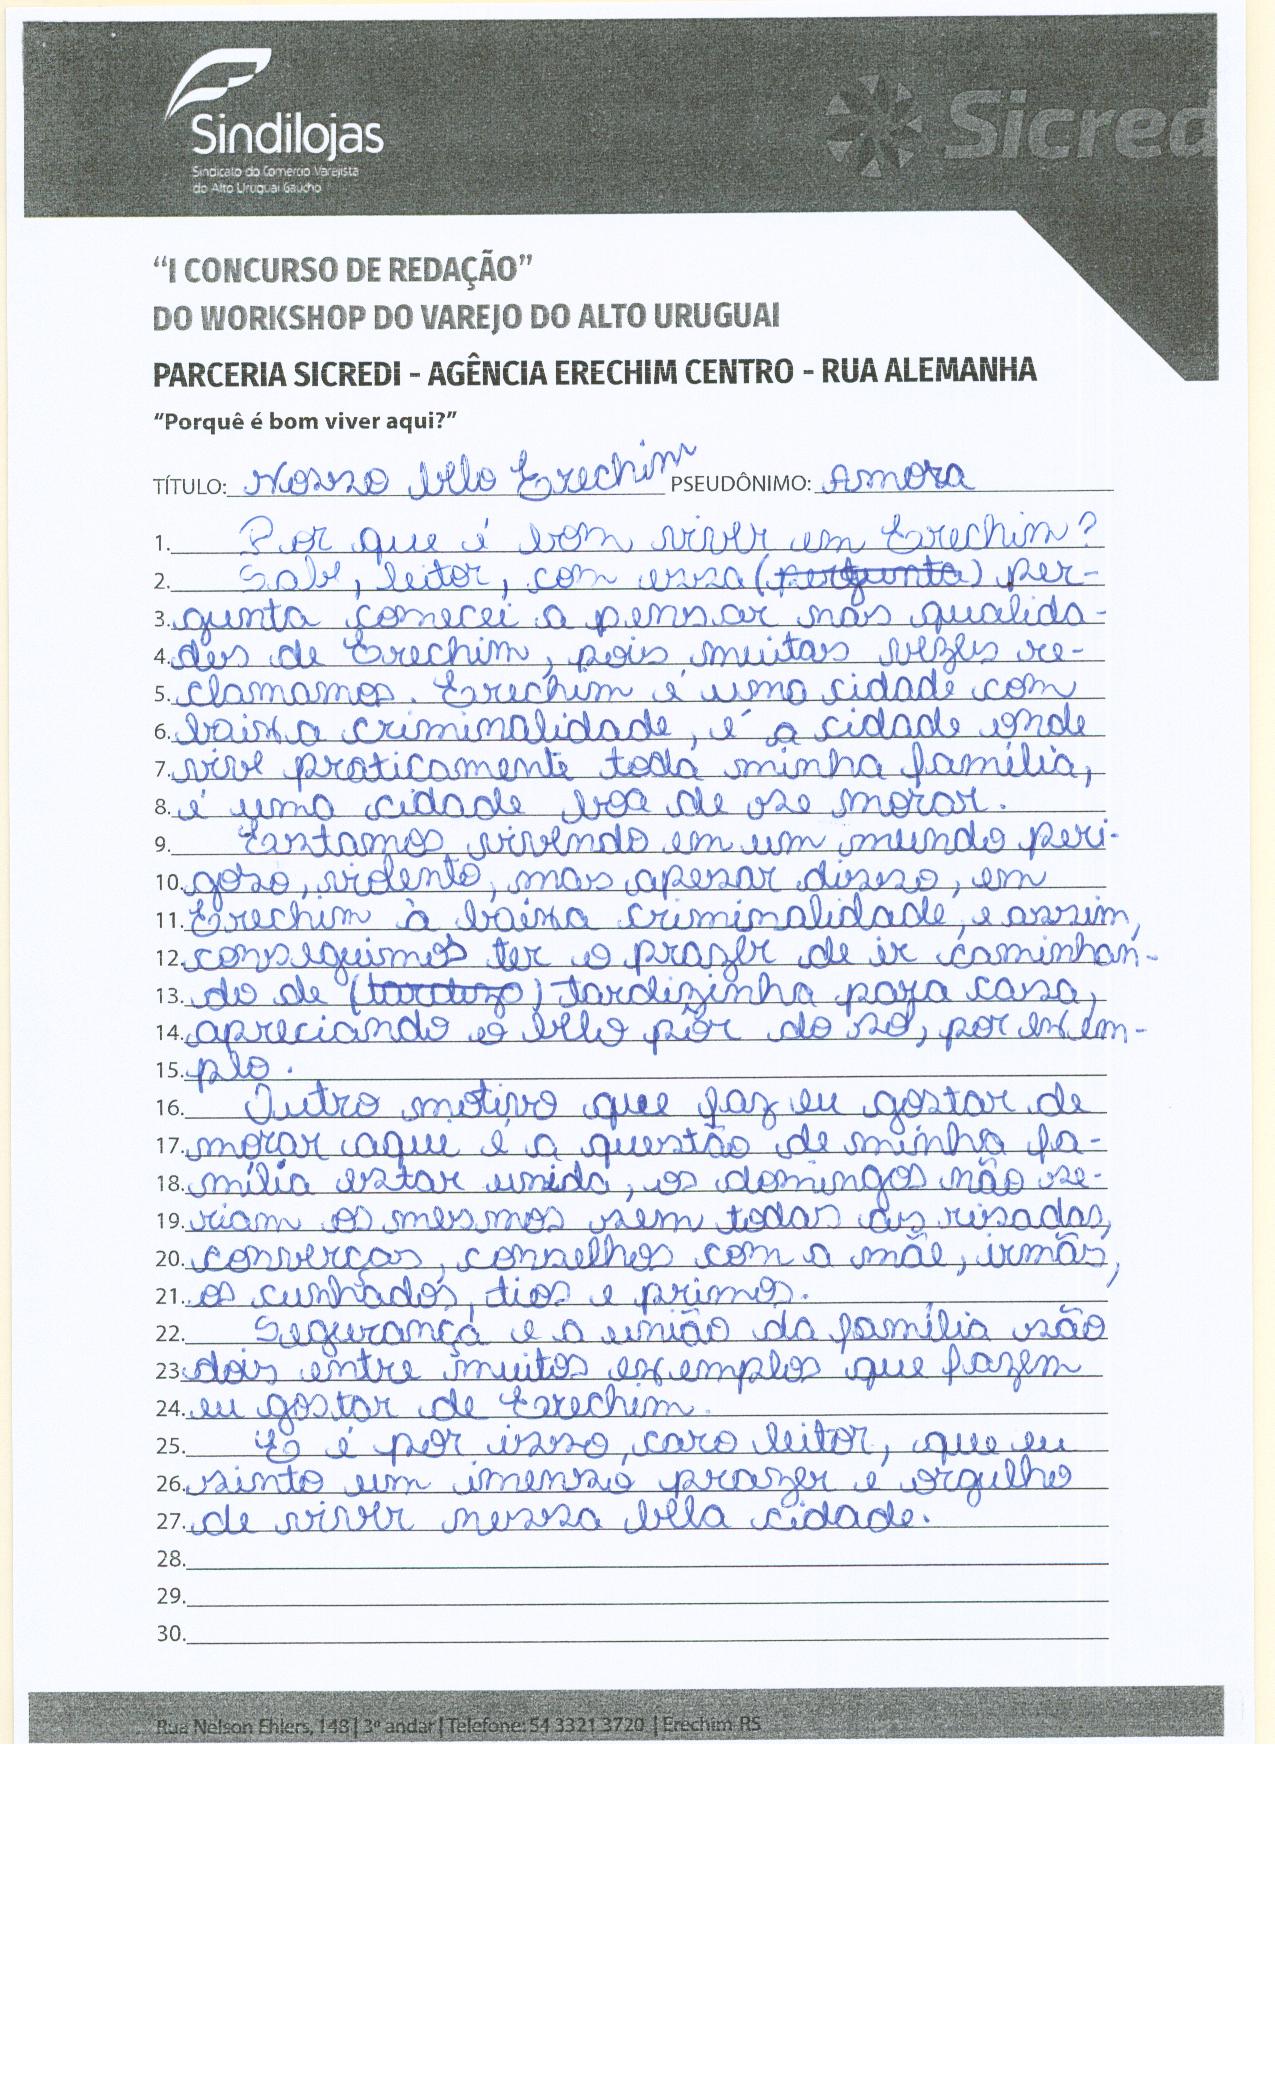 Sindilojas
Sindicato do Comercio Varejista
do Alto Uruguai Gaúcho
Sicred
“I CONCURSO DE REDAÇÃO”
DO WORKSHOP DO VAREJO DO ALTO URUGUAI
PARCERIA SICREDI - AGÊNCIA ERECHIM CENTRO - RUA ALEMANHA
“Porquê é bom viver aqui?”
TÍTULO: Nosso belo Erechim PSEUDÔNIMO: Amora
1. Por que é bom viver em Erechim?
2. Sabe, leitor, com essa (pergunta) per-
3. gunta comecei a pensar nas qualida-
4. des de Erechim, pois muitas vezes re-
5. clamamos. Erechim é uma cidade com
6. baixa criminalidade, é a cidade onde
7. vive praticamente toda minha família,
8. é uma cidade boa de se morar.
9. Estamos vivendo em um mundo peri-
10. goso, violento, mas apesar disso, em
11. Erechim à baixa criminalidade, e assim,
12. conseguimos ter o prazer de ir caminhan-
13. do de (tardizo) tardizinha para casa,
14. apreciando o belo pôr do sol, por exem-
15. plo.
16. Outro motivo que faz eu gostar de
17. morar aqui é a questão de minha fa-
18. mília estar unida, os domingos não se-
19. riam os mesmos sem todas as risadas,
20. converças, conselhos com a mãe, irmãs,
21. os cunhados, tios e primos.
22. Segurança e a união da família são
23. dois entre muitos exemplos que fazem
24. eu gostar de Erechim.
25. E é por isso, caro leitor, que eu
26. sinto um imenso prazer e orgulho
27. de viver nessa bela cidade.
28.
29.
30.
Rua Nelson Ehlers, 148 | 3º andar | Telefone: 54 3321 3720 | Erechim-RS